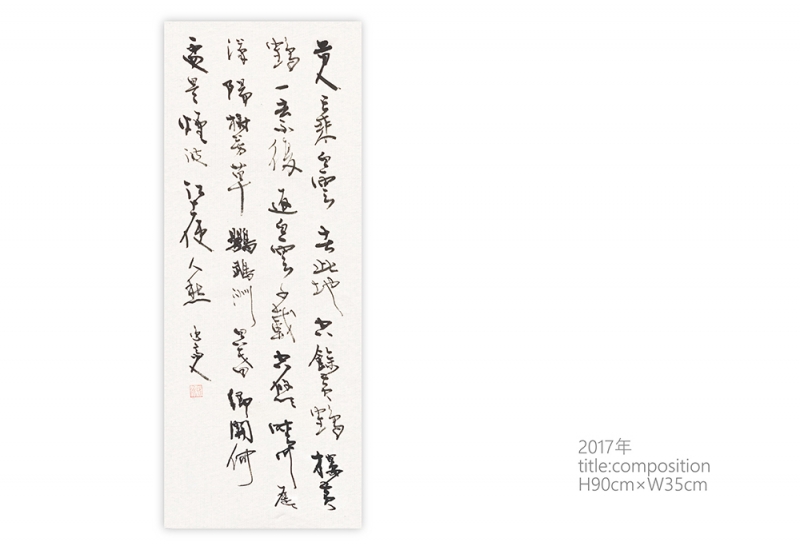 昔人已乘白雲去此地空餘黃鶴樓黃
鶴一去不復返白雲千載空悠晴川歷
漢陽樹芳草鸚鵡洲日暮鄉關何
處是煙波江上使人愁
2017年
title:composition
H90cm×W35cm